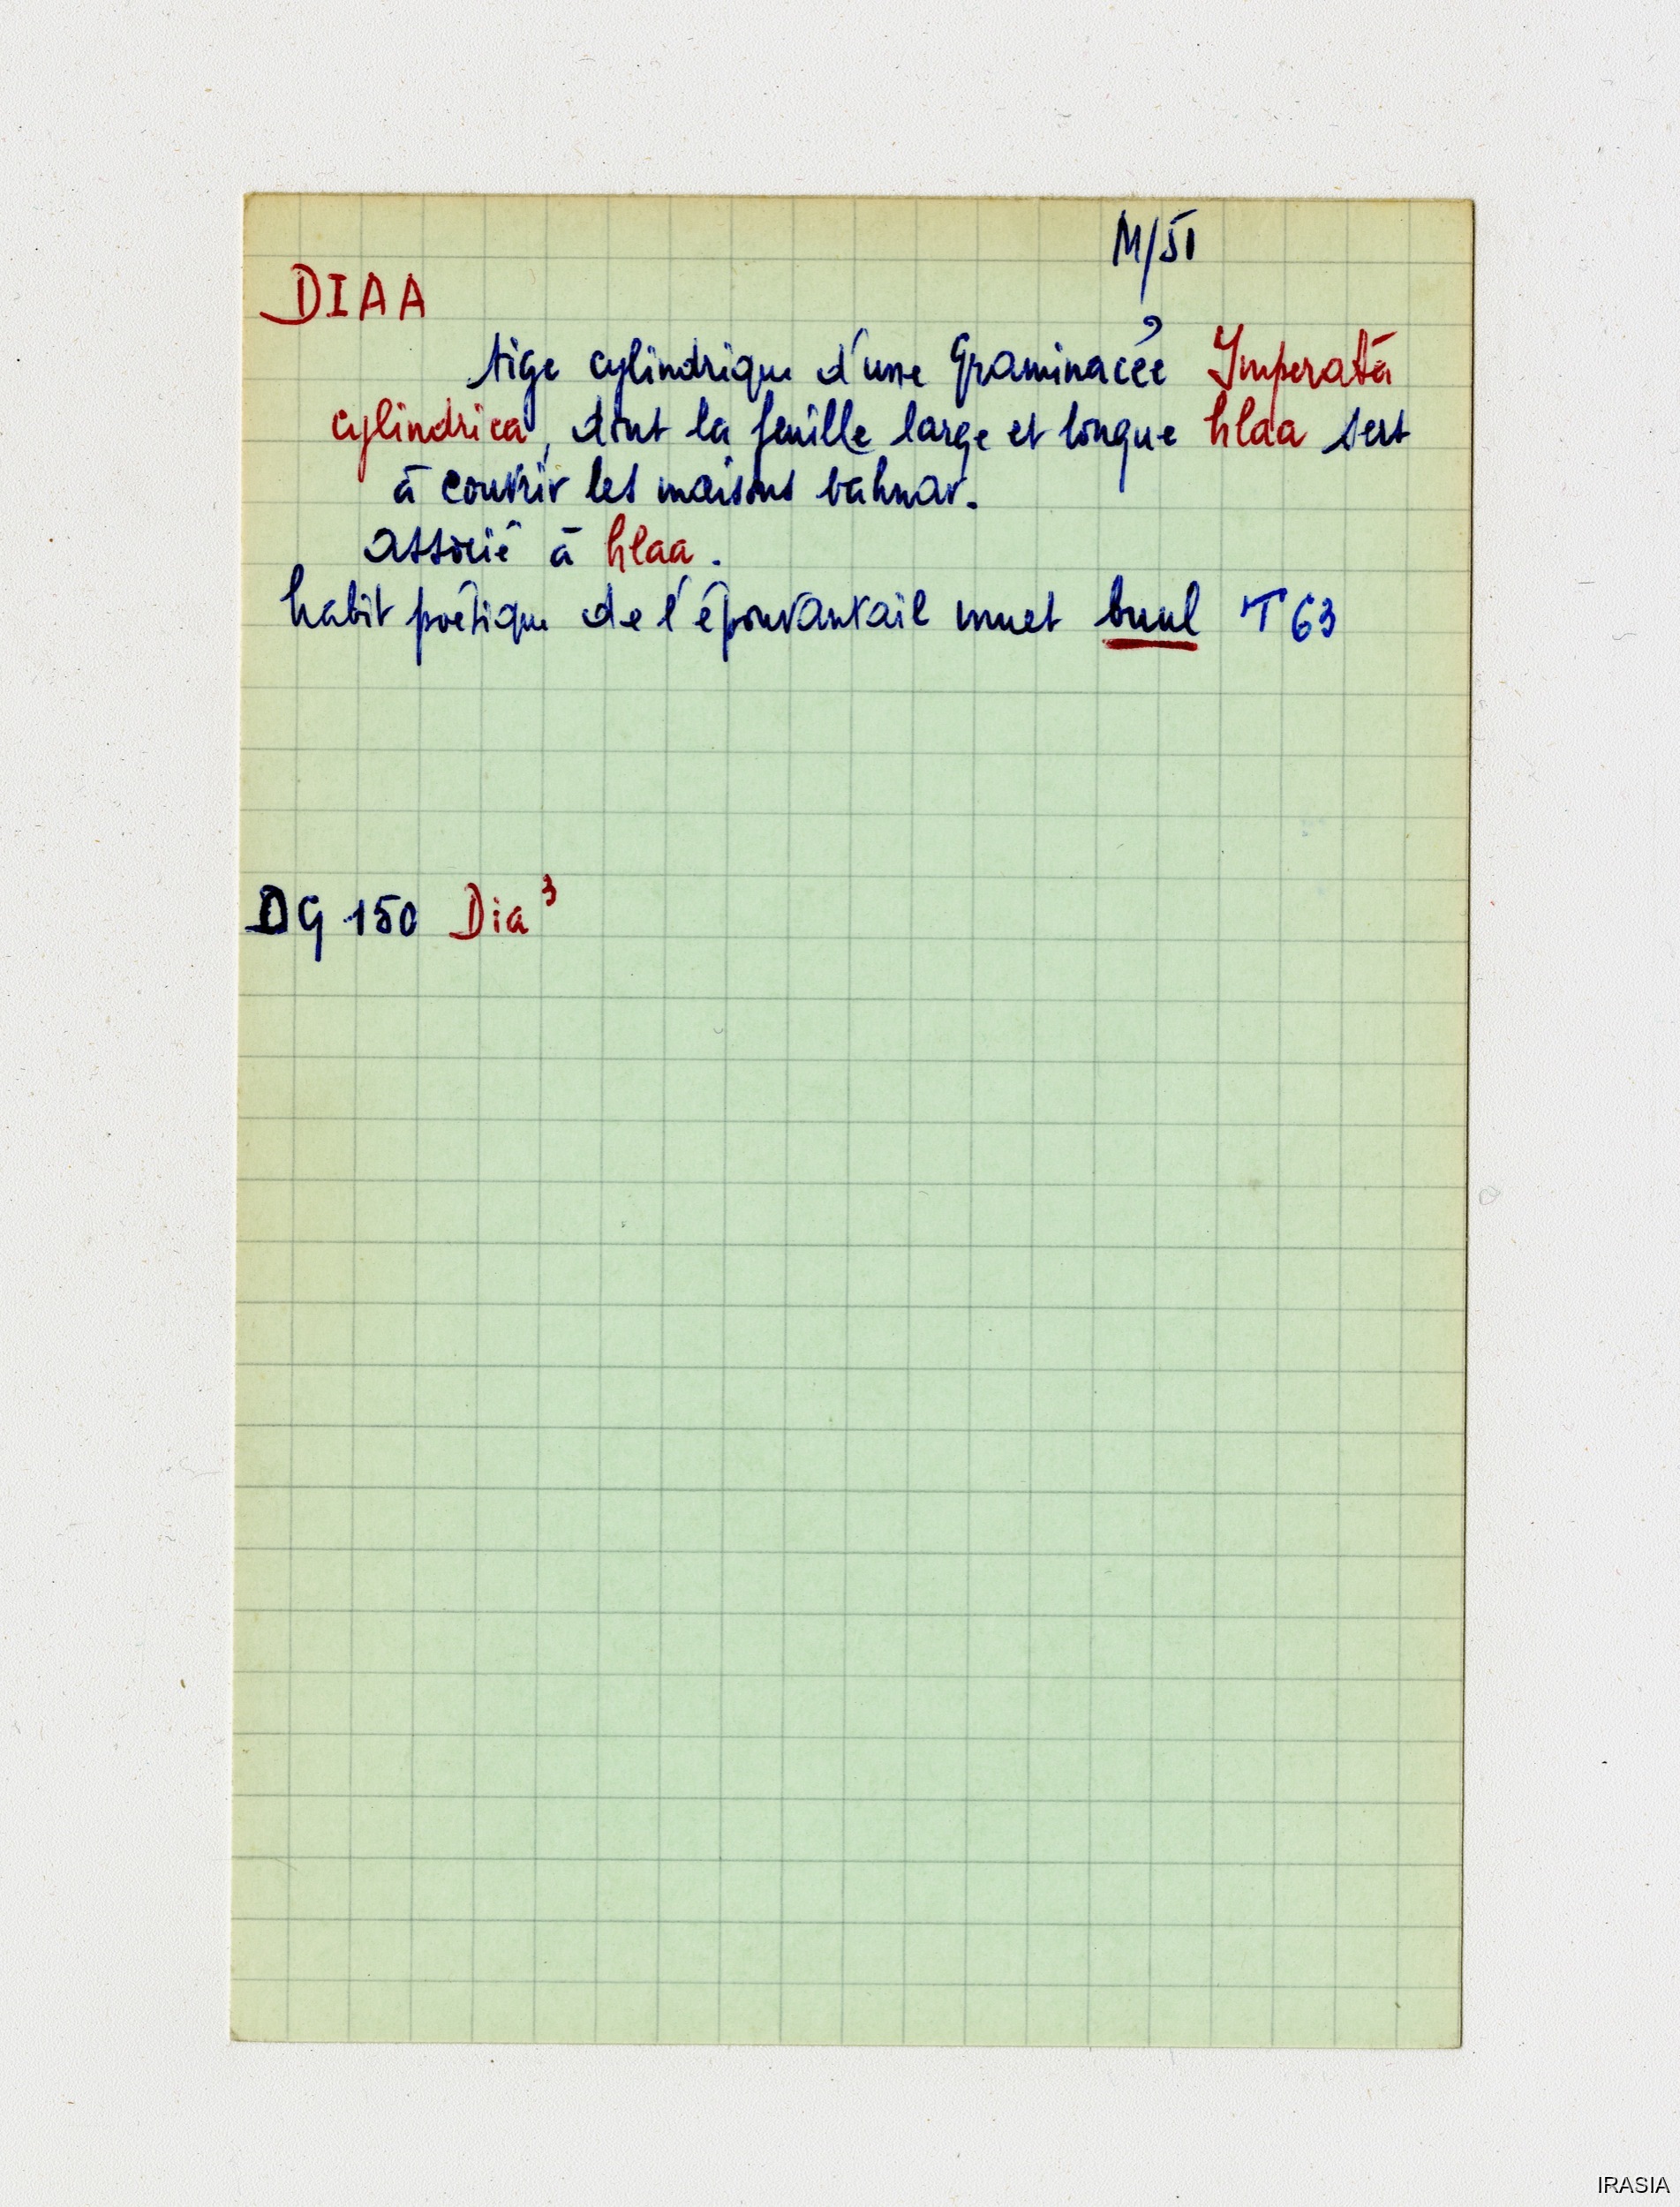 M/51
DIAA
tige cylindrique d'une Graminacée Imperata
cylindrica, dont la feuille large et longue hlaa sert
à couvrir les maisons bahnar.
associé à hlaa.
habit poétique de l'épouvantail muet buul T 63
DG 150 Dia³
IRASIA